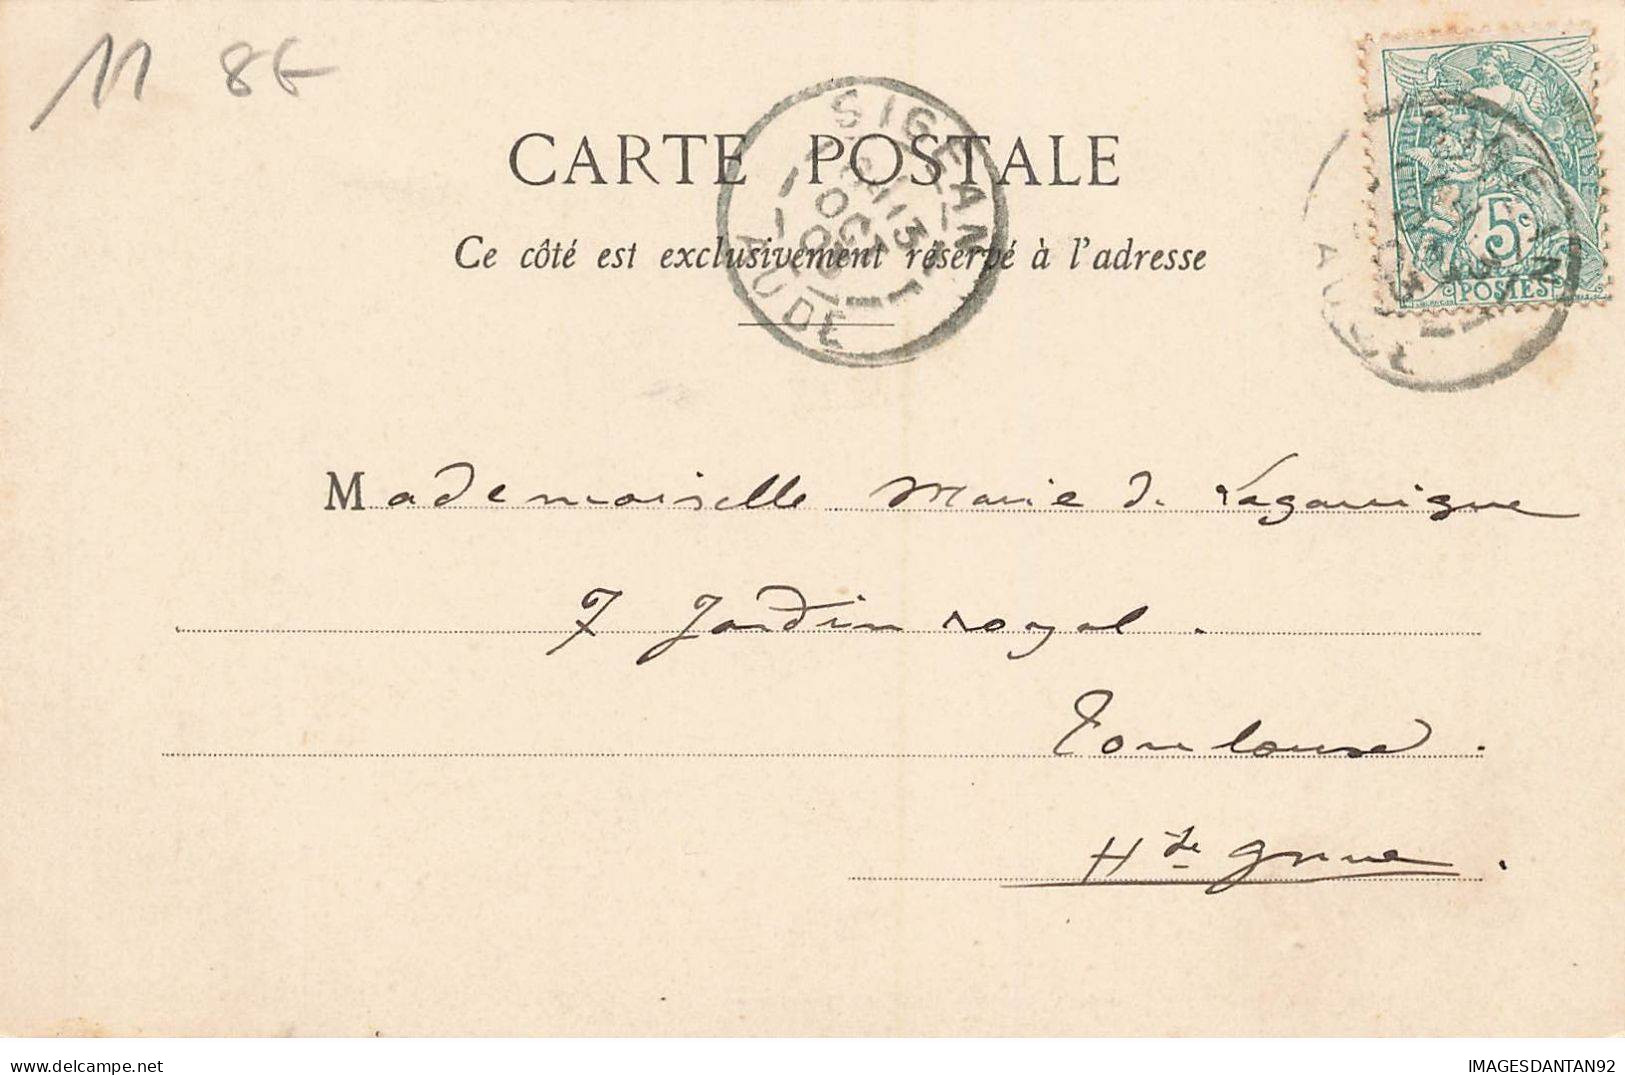 11 8€
CARTE POSTALE
Ce côté est exclusivement réservé à l'adresse
SIGEAN
13
OCT
03
AUDE
RÉPUBLIQUE FRANÇAISE
5c
POSTES
Mademoiselle Marie de Lagarrigue
7 Jardin royal.
Toulouse.
Hte Gnne.
delcampe.net
IMAGESDANTAN92